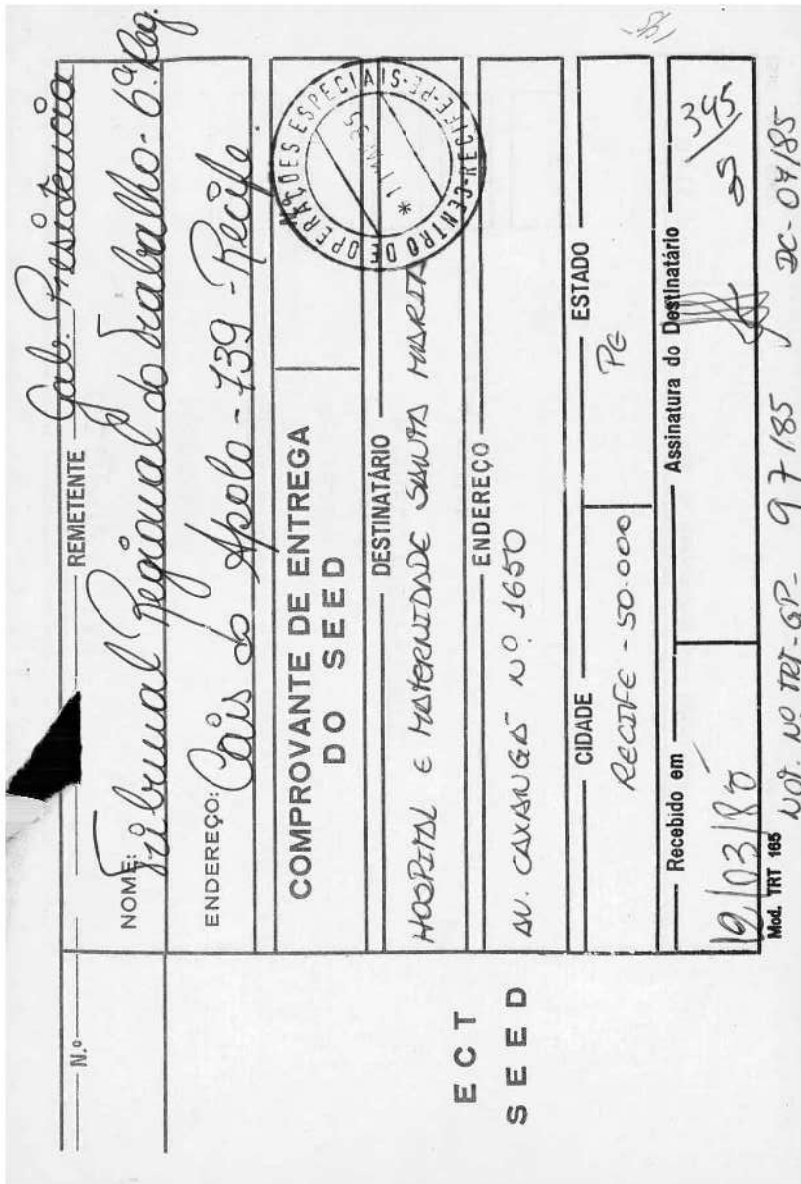 N.º
REMETENTE Gab. Presidencia
NOME: Tribunal Regional do Trabalho - 6ª Reg.
ENDEREÇO: Cais do Apolo - 739 - Recife.
COMPROVANTE DE ENTREGA
DO SEED
CENTRO DE OPERAÇÕES ESPECIAIS-RECIFE-PE
DESTINATÁRIO
HOSPITAL E MATERNIDADE SANTA MARIA
ENDEREÇO
AV. CAXANGÁ Nº 1650
CIDADE
ESTADO
RECIFE - 50.000
PE
Recebido em
Assinatura do Destinatário
12/03/85
345
Mod. TRT 165
NOT. Nº TRT-GP- 97/85 DC-04/85
ECT
SEED